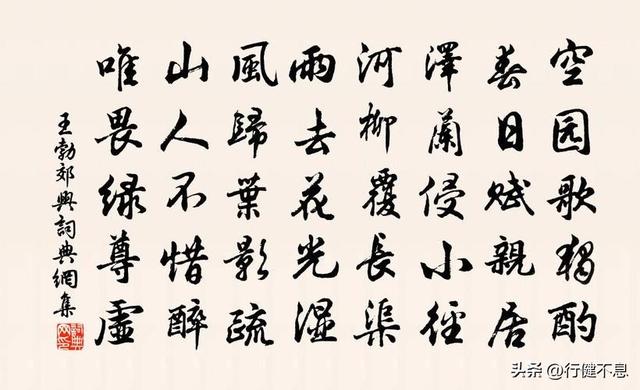 空园歌獨酌
春日賦親居
澤蘭侵小徑
河柳覆長渠
雨去花光湿
風歸葉影疏
山人不惜醉
唯畏绿尊虛
王勃郊興詞典網集
头条 @行健不息